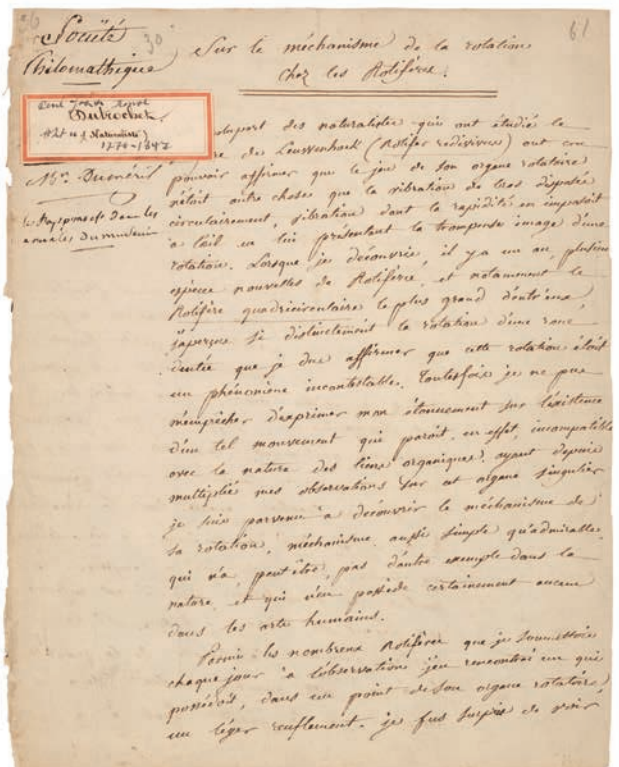 Société
Philomathique
30
61
Sur le méchanisme de la rotation
chez les Rotifères.
Dutrochet
1776-1847
Mr. Duméril
annales du muséum
plupart des naturalistes qui ont étudié le
de Leuwenhoek (Rotifer redivivus) ont cru
pouvoir affirmer que le jeu de son organe rotatoire
n'étoit autre chose que la vibration de bras disposés
circulairement, vibration dont la rapidité en imposoit
à l'œil en lui présentant la trompeuse image d'une
rotation. Lorsque je découvris, il y a un an, plusieurs
espèces nouvelles de Rotifères, et notamment le
Rotifère quadricirculaire le plus grand d'entr'eux,
j'aperçus si distinctement la rotation d'une roue
dentée que je dus affirmer que cette rotation étoit
un phénomène incontestable. Toutesfois je ne pus
m'empêcher d'exprimer mon étonnement sur l'existence
d'un tel mouvement qui paroit, en effet, incompatible
avec la nature des liens organiques. ayant depuis
multiplié mes observations sur cet organe singulier
je suis parvenu à découvrir le méchanisme de
sa rotation, méchanisme aussi simple qu'admirable,
qui n'a, peut être, pas d'autre exemple dans la
nature, et qui n'en possède certainement aucun
dans les arts humains.
Parmi les nombreux Rotifères que je soumettois
chaque jour à l'observation j'en rencontrai un qui
possédoit, dans un point de son organe rotatoire,
un léger renflement. je fus surpris de voir